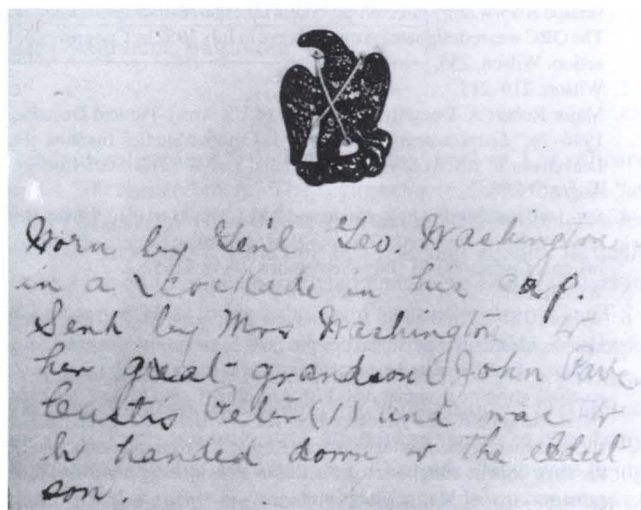 Worn by Gen'l Geo. Washington
in a cockade in his cap.
Sent by Mrs Washington to
her great-grandson (John Parke
Custis Peter (1) and was to
be handed down to the eldest
son.